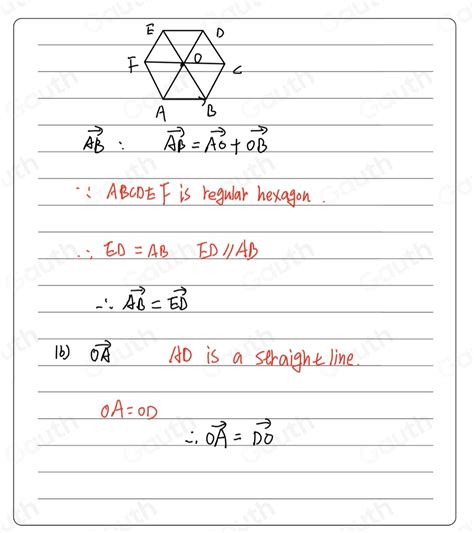 E D
F O C
A B
AB⃗ : AB⃗ = AO⃗ + OB⃗
∵ ABCDEF is regular hexagon .
∴ ED = AB ED // AB
∴ AB⃗ = ED⃗
1b) OA⃗ AD is a straight line.
OA = OD
∴ OA⃗ = DO⃗